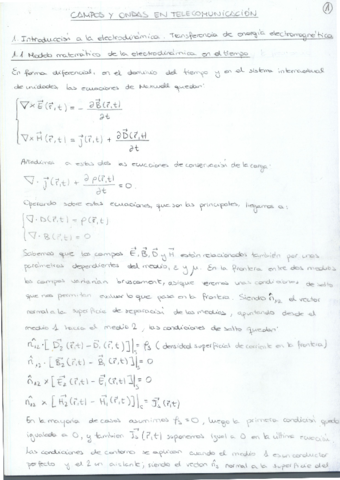 ①
CAMPOS Y ONDAS EN TELECOMUNICACIÓN
1. Introducción a la electrodinámica. Transferencia de energía electromagnética
1.1 Modelo matemático de la electrodinámica en el tiempo
En forma diferencial, en el dominio del tiempo y en el sistema internacional
de unidades las ecuaciones de Maxwell quedan:
∇×E⃗(r⃗,t) = - ∂B⃗(r⃗,t)/∂t
∇×H⃗(r⃗,t) = j⃗(r⃗,t) + ∂D⃗(r⃗,t)/∂t
Añadimos a estas dos la ecuaciones de conservación de la carga:
∇·j⃗(r⃗,t) + ∂ρ(r⃗,t)/∂t = 0
Operando sobre estas ecuaciones, que son las principales, llegamos a:
∇·D(r⃗,t) = ρ(r⃗,t)
∇·B(r⃗,t) = 0
Sabemos que los campos E⃗, B⃗, D⃗ y H⃗ están relacionados también por unos
parámetros dependientes del medio, ε y μ. En la frontera entre dos medios
los campos variarán bruscamente, aunque veremos unas condiciones de salto
que nos permiten evaluar lo que pasa en la frontera. Siendo n̂₁₂ el vector
normal a la superficie de separación de los medios, apuntando desde el
medio 1 hacia el medio 2, las condiciones de salto quedan:
n̂₁₂·[D⃗₂(r⃗,t) - D⃗₁(r⃗,t)]|s = ρs (densidad superficial de en la frontera)
n̂₁₂·[B⃗₂(r⃗,t) - B⃗₁(r⃗,t)]|s = 0
n̂₁₂ × [E⃗₂(r⃗,t) - E⃗₁(r⃗,t)]|s = 0
n̂₁₂ × [H⃗₂(r⃗,t) - H⃗₁(r⃗,t)]|s = J⃗s(r⃗,t)
En la mayoría de casos asumimos ρs = 0, luego la primera condición queda
igualada a 0, y también J⃗s(r⃗,t) suponemos igual a 0 en la última ecuación.
Las condiciones de contorno se suponen cuando el medio 1 es un conductor
perfecto y el 2 un aislante, siendo el vector n̂₁₂ normal a la superficie del